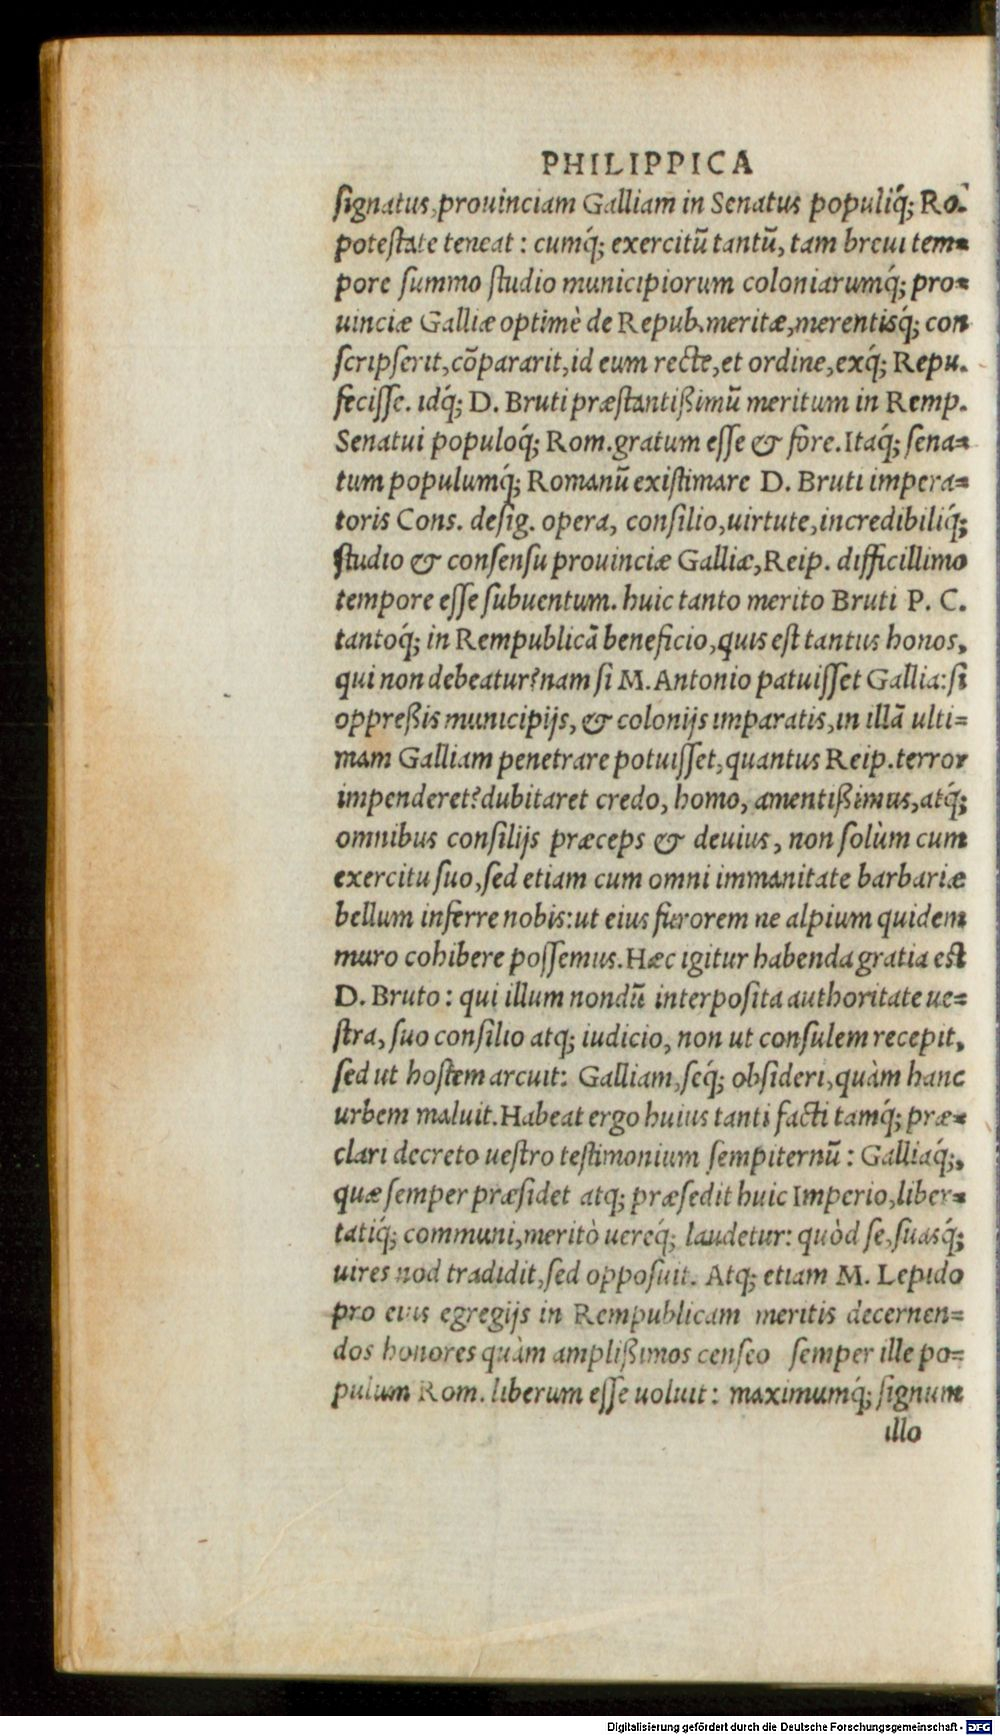 PHILIPPICA
ſignatus, prouinciam Galliam in Senatus populiq́; Ro.
poteſtate teneat: cumq́; exercitū tantū, tam breui tem=
pore ſummo ſtudio municipiorum coloniarumq́; pro=
uinciæ Galliæ optimè de Repub. meritæ, merentisq́; con
ſcripſerit, cōpararit, id eum recte, et ordine, exq́; Repu.
feciſſe. idq́; D. Bruti præſtantißimū meritum in Remp.
Senatui populoq́; Rom. gratum eſſe & fore. Itaq́; ſena=
tum populumq́; Romanū exiſtimare D. Bruti impera=
toris Cons. deſig. opera, conſilio, uirtute, incredibiliq́;
ſtudio & conſenſu prouinciæ Galliæ, Reip. difficillimo
tempore eſſe ſubuentum. huic tanto merito Bruti P. C.
tantoq́; in Rempublicā beneficio, quis eſt tantus honos,
qui non debeatur? nam ſi M. Antonio patuiſſet Gallia: ſi
oppreßis municipijs, & colonijs imparatis, in illā ulti=
mam Galliam penetrare potuiſſet, quantus Reip. terror
impenderet? dubitaret credo, homo, amentißimus, atq́;
omnibus conſilijs præceps & deuius, non ſolùm cum
exercitu ſuo, ſed etiam cum omni immanitate barbariæ
bellum inferre nobis: ut eius furorem ne alpium quidem
muro cohibere poſſemus. Hæc igitur habenda gratia eſt
D. Bruto: qui illum nondū interpoſita authoritate ue=
ſtra, ſuo conſilio atq; iudicio, non ut conſulem recepit,
ſed ut hoſtem arcuit: Galliam, ſeq́; obſideri, quàm hanc
urbem maluit. Habeat ergo huius tanti facti tamq́; præ=
clari decreto ueſtro teſtimonium ſempiternū: Galliaq́;,
quæ ſemper præſidet atq; præſedit huic Imperio, liber=
tatiq́; communi, meritò uereq́; laudetur: quòd ſe, ſuasq́;
uires nod tradidit, ſed oppoſuit. Atq; etiam M. Lepido
pro eius egregijs in Rempublicam meritis decernen=
dos honores quàm amplißimos cenſeo ſemper ille po=
pulum Rom. liberum eſſe uoluit: maximumq́; ſignum
illo
Digitalisierung gefördert durch die Deutsche Forschungsgemeinschaft - DFG